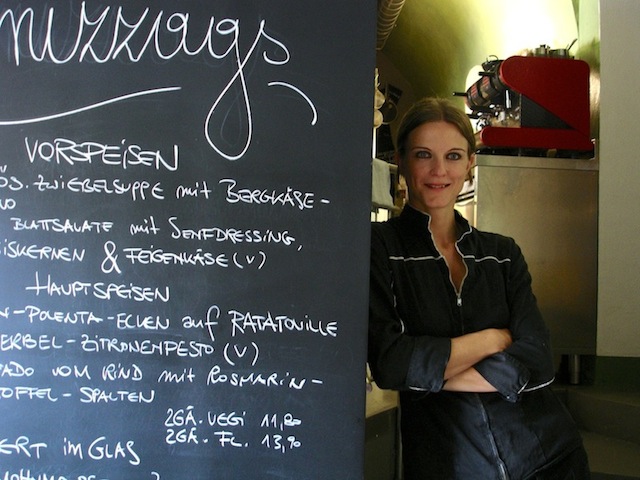 VORSPEISEN
ÖS. ZWIEBELSUPPE mit BERGKÄSE-
BLATTSALATE mit SENFDRESSING,
ISKERNEN & FEIGENKÄSE (V)
HAUPTSPEISEN
N-POLENTA-ECKEN auf RATATOUILLE
ERBEL-ZITRONENPESTO (V)
ADO VOM RIND mit ROSMARIN-
TOFFEL-SPALTEN
2GÄ. VEGI 11,80
2GÄ. FL. 13,90
ERT im GLAS